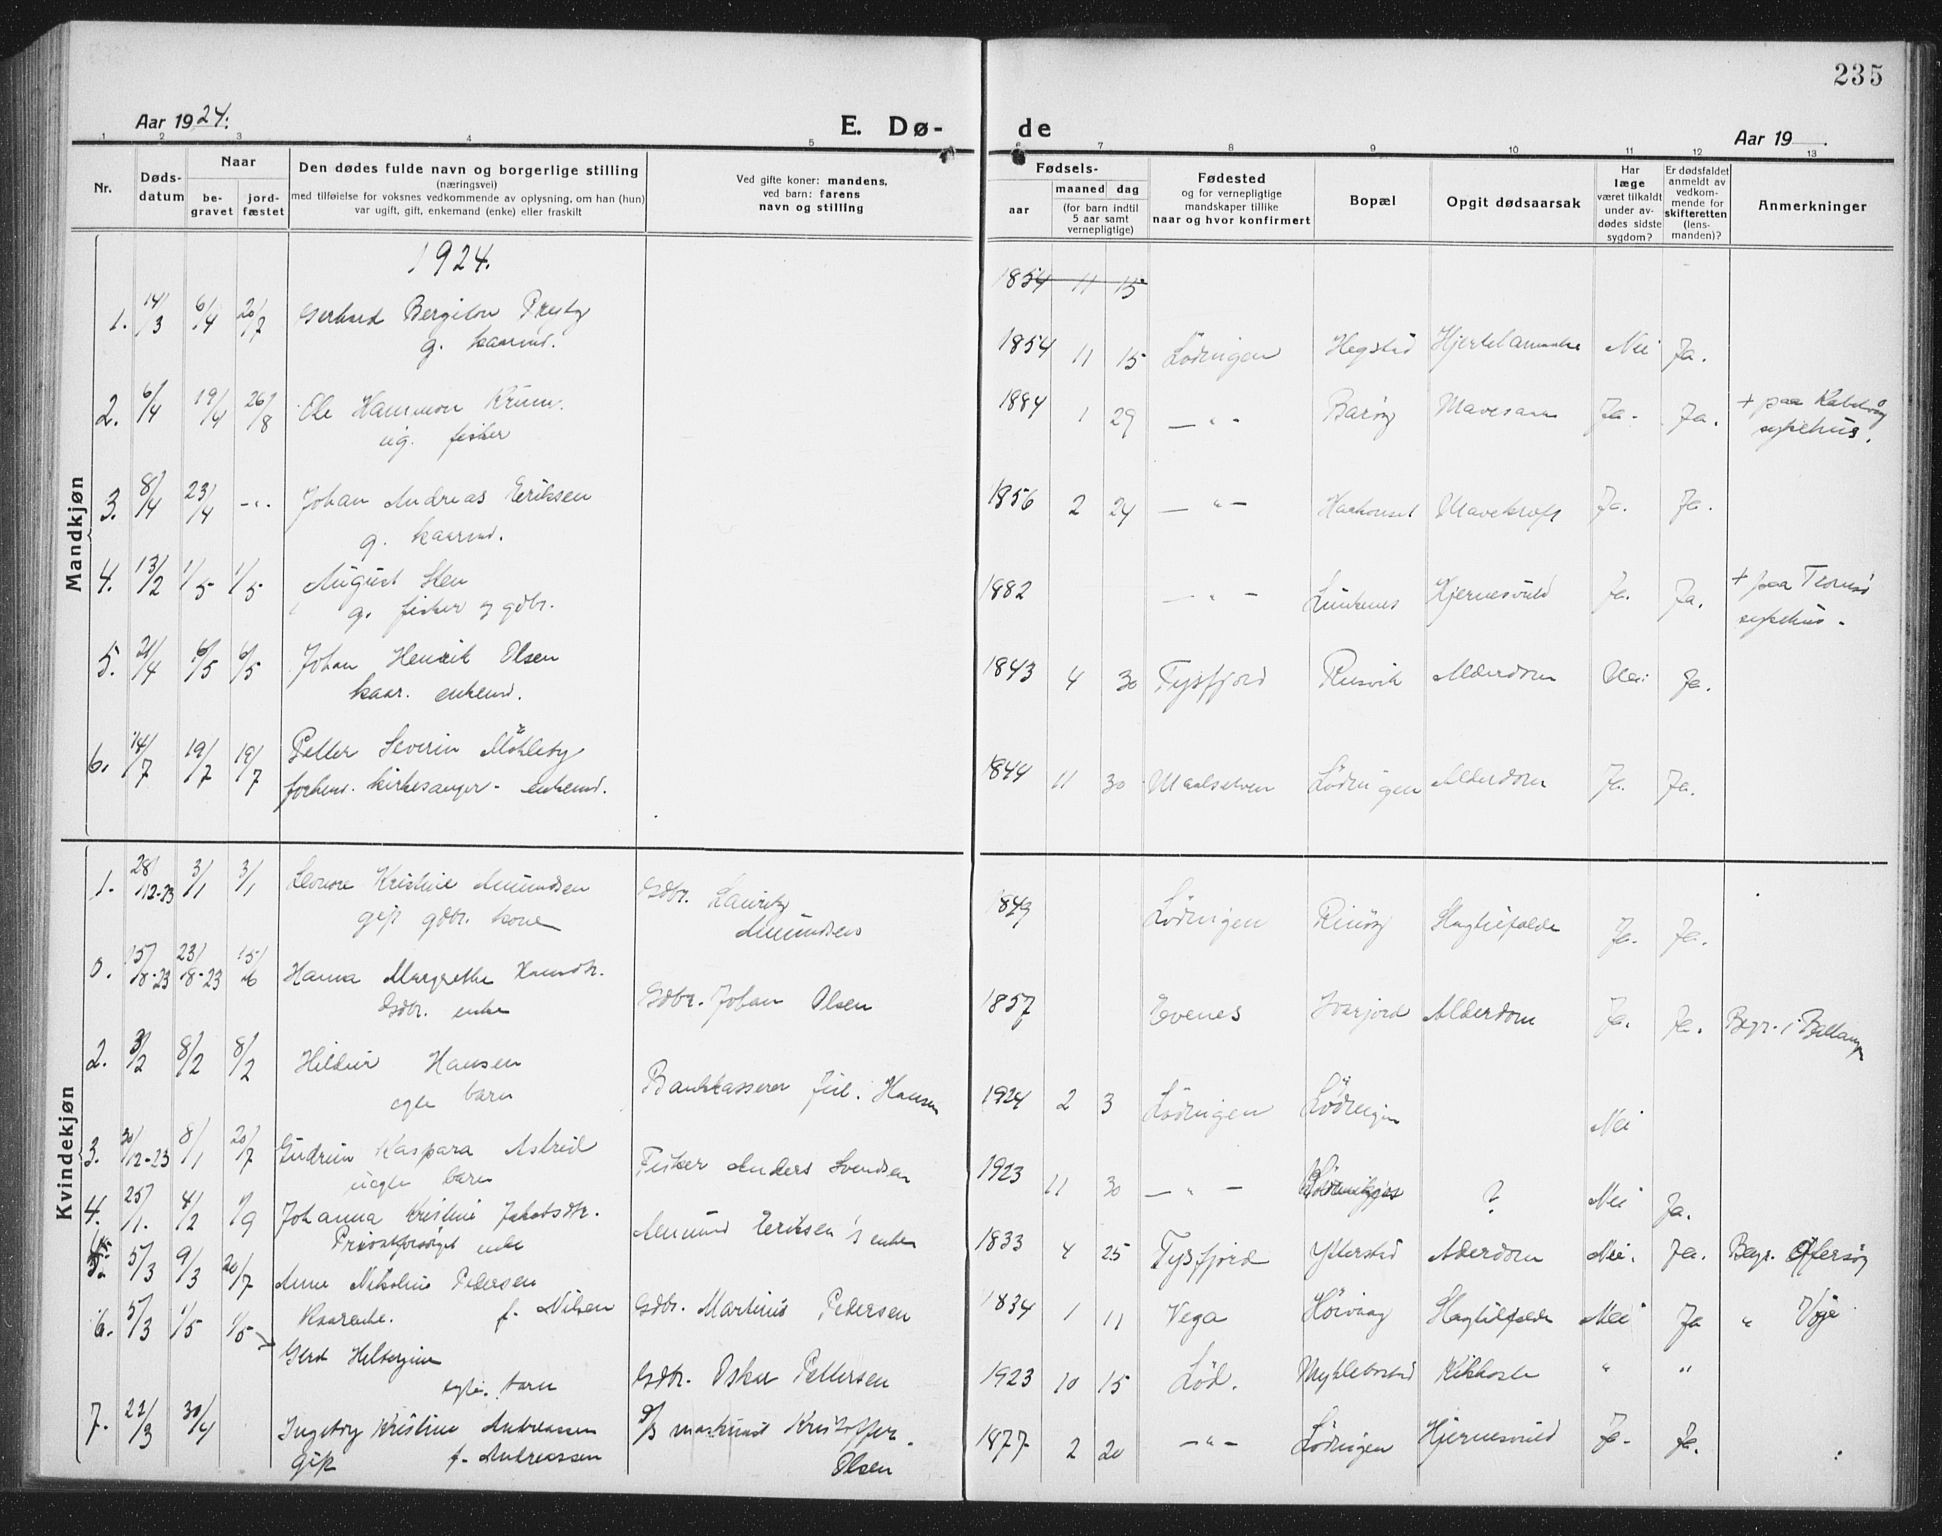 235
Aar 1924.
E. Dø-
de
Aar 19
1 2 3 4 5 6 7 8 9 10 11 12 13
Nr.
Døds-
datum
Naar
be-
gravet
jord-
fæstet
Den dødes fulde navn og borgerlige stilling
(næringsvei)
med tilføielse for voksnes vedkommende av oplysning, om han (hun)
var ugift, gift, enkemand (enke) eller fraskilt
Ved gifte koner: mandens,
ved barn: farens
navn og stilling
Fødsels-
aar
maaned dag
(for barn indtil
5 aar samt
vernepligtige)
Fødested
og for vernepligtige
mandskaper tillike
naar og hvor konfirmert
Bopæl
Opgit dødsaarsak
Har
læge
været tilkaldt
under av-
dødes sidste
sygdom?
Er dødsfaldet
anmeldt av
vedkom-
mende for
skifteretten
(lens-
manden)?
Anmerkninger
Mandkjøn
1924.
1854 11 15
1. 14/3 6/4 20/7 Gerhard Bergiton
g. kaarmd.
1854 11 15 Lødingen Hegstad Nei Ja.
2. 6/4 19/4 26/8 Ole
ug. fisker
1884 1 29 — " - Barøy Ja. Ja. + paa Kabelvåg
sykehus.
3. 8/4 23/4 -"- Johan Andreas Eriksen
g. kaarmd.
1856 2 24 — " — Ja. Ja.
4. 13/2 1/5 1/5 August Sten
g. fisker og gdbr.
1882 — " — Ja. Ja. + paa Tromsø
sykehus.
5. 21/4 6/5 6/5 Johan Henrik Olsen
kaar. enkemd.
1843 4 30 Tysfjord Rusvik Alderdom Nei Ja.
6. 14/7 19/7 19/7 Petter Severin
forhenv. kirkesanger - enkemd.
1844 11 30 Maalselven Lødingen Alderdom Ja. Ja.
Kvindekjøn
1. 28/12-23 3/1 3/1 Leonore Kristine Amundsen
gift gdbr. kone
Gdbr. Lauritz
Amundsen
1849 Lødingen Rinøy Slagtilfælde Ja. Ja.
0. 15/8-23 23/8-23 15/6 Hanna Margrethe
Gdbr. enke
Gdbr. Johan Olsen
1857 Evenes Alderdom Ja. Ja. Begr. i
2. 3/2 8/2 8/2 Hildur Hansen
egte barn
Bankkasserer Hansen
1924 2 3 Lødingen Lødingen Nei
3. 30/12-23 8/1 20/7 Gudrun Kaspara Astrid
uegte barn
Fisker Anders Svendsen
1923 11 30 — " — ? Nei Ja.
4. 25/1. 4/2 1/9 Johanna Kristine Jakobsdtr.
enke
Amund Eriksen's enke
1833 4 25 Tysfjord Ytterstad Alderdom Nei. Ja. Begr. Offersøy
5. 5/3 9/3 20/7 Anne Nikoline Pedersen
Kaarenke. f. Nilsen
Gdbr. Martinus Pedersen
1834 1 11 Vega Slagtilfælde Nei Ja "
6. 5/3 1/5 1/5 Gerd
egte. barn
Gdbr. Oskar Pettersen
1923 10 15 Lød. Kikhoste " "
7. 22/3 30/4 Ingeborg Kristine Andreassen
gift f. Andreassen
Kristoffer
Olsen
1877 2 20 — " — Lødingen Ja. Ja.